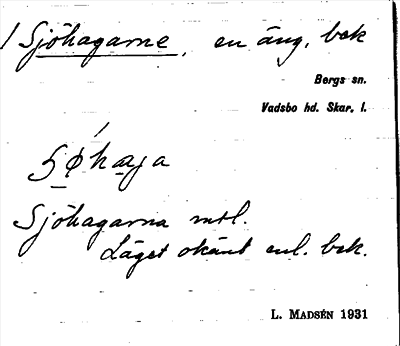 1 Sjöhagarne, en äng, bek
Bergs sn.
Vadsbo hd. Skar. l.
Sjöhagarna mtl.
Läget okänt enl. bek.
L. MADSÉN 1931